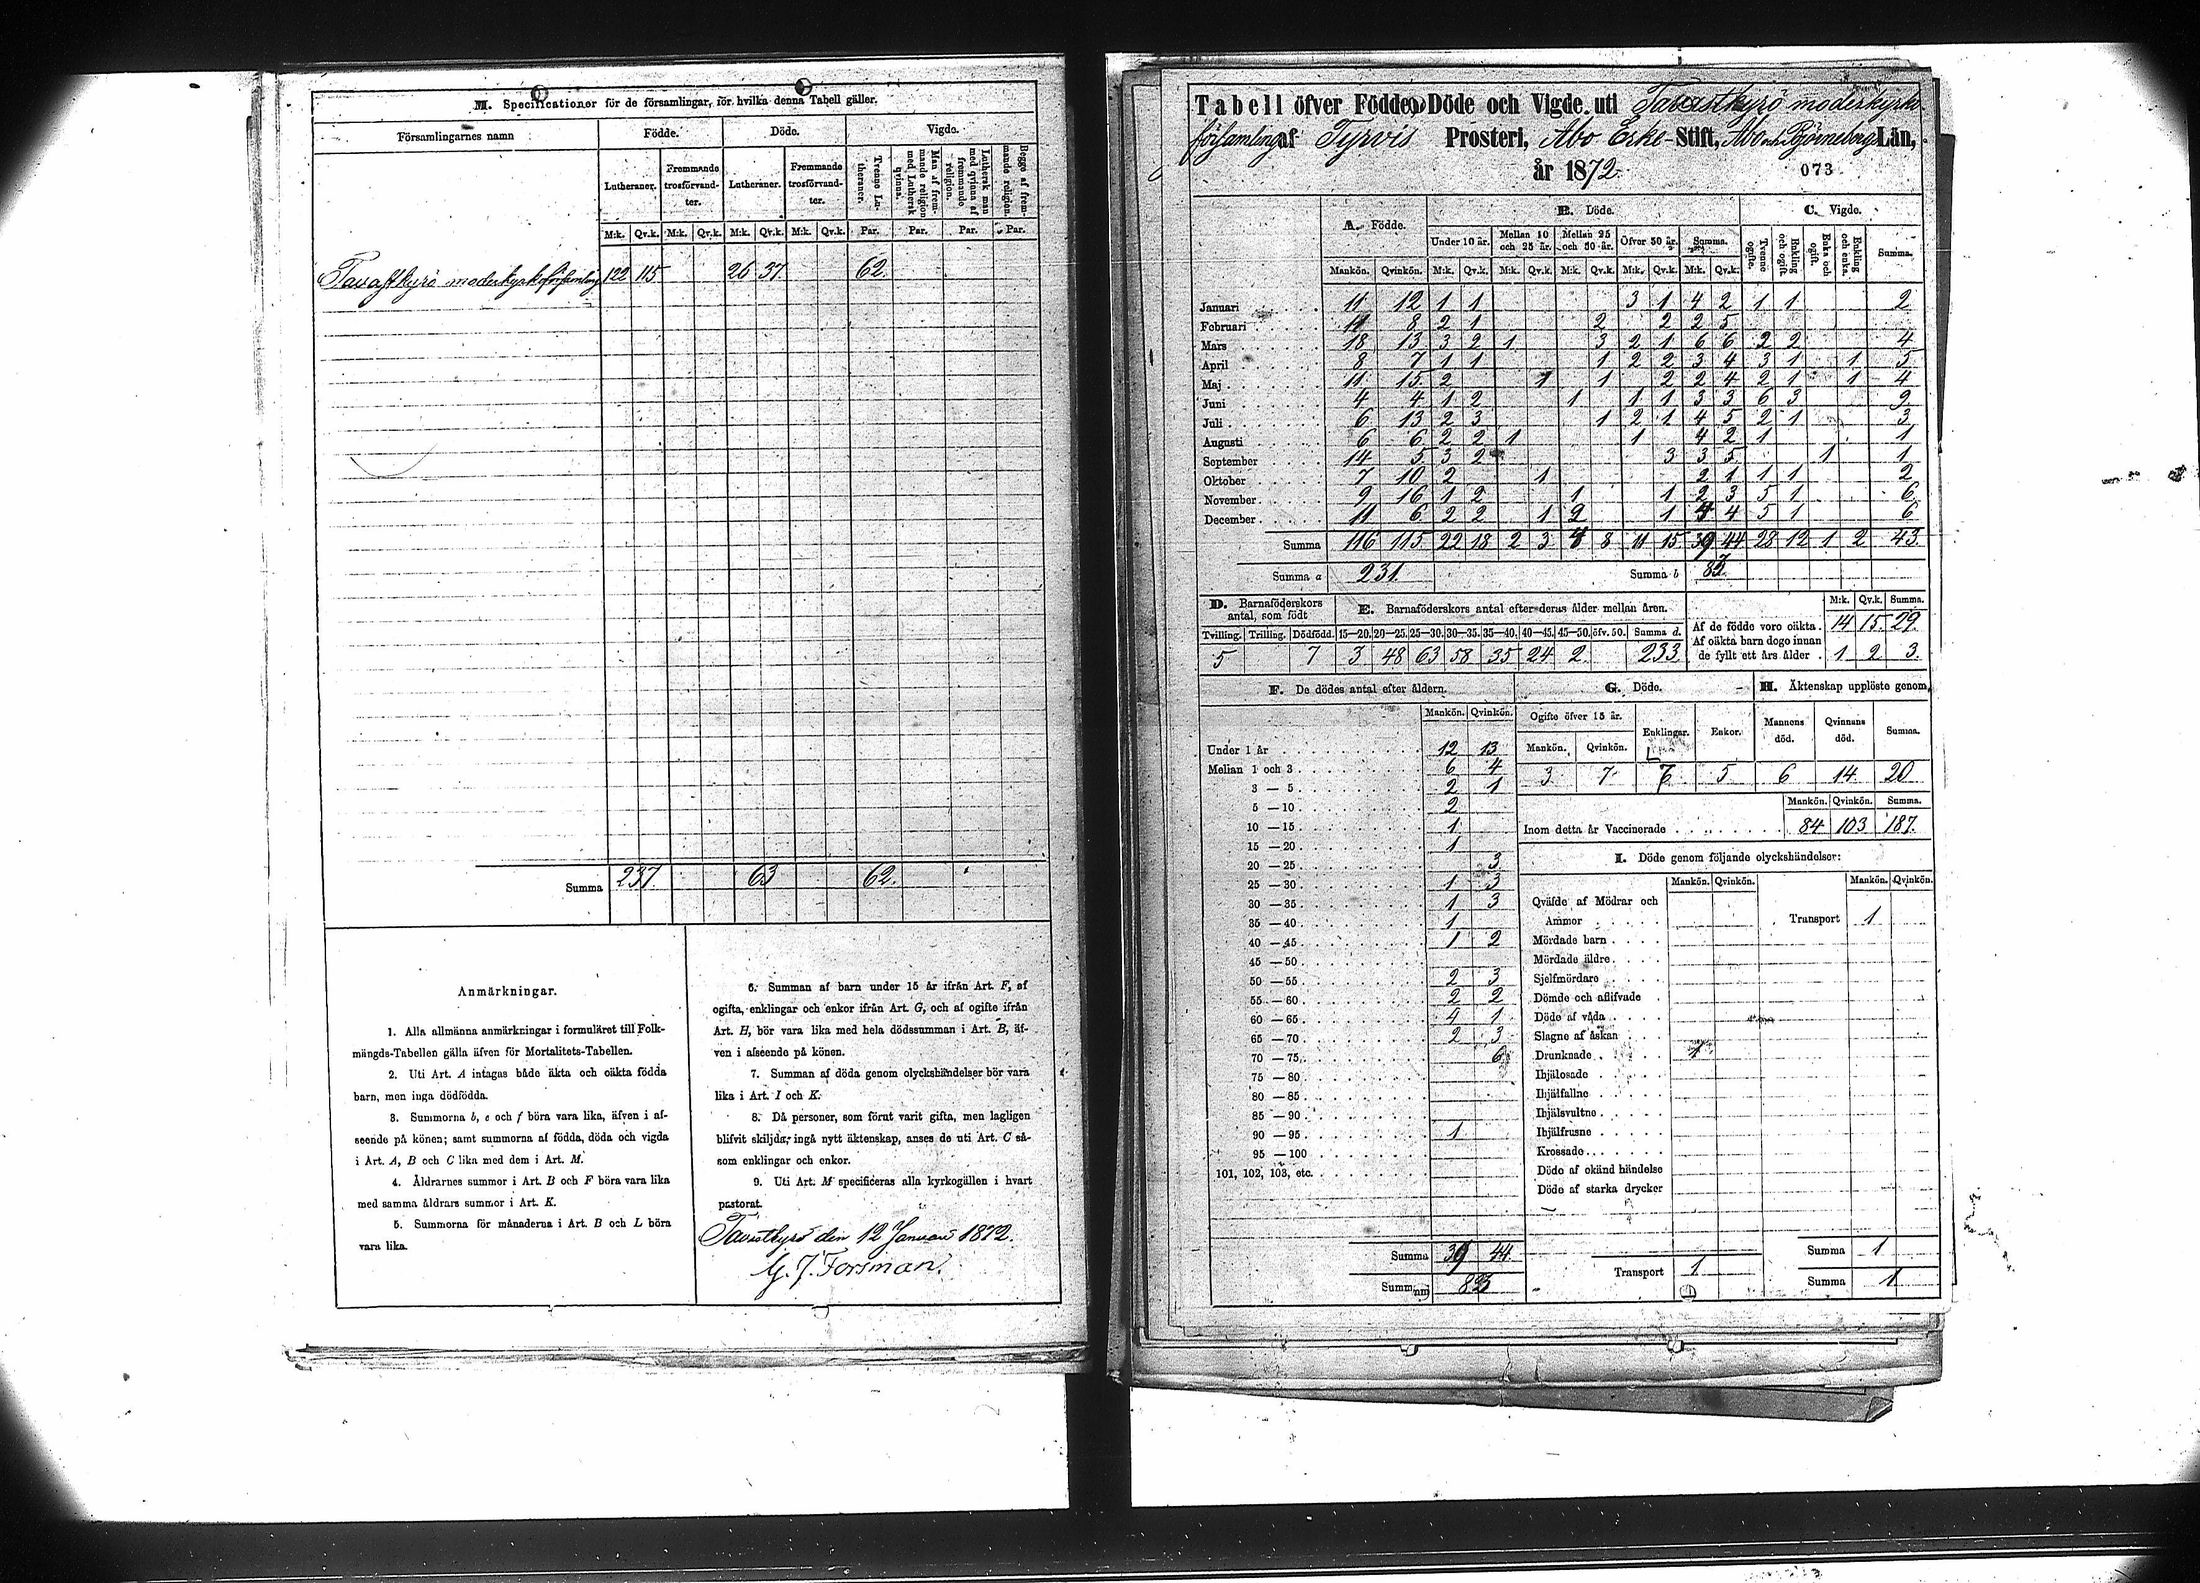 M. Specificationer för de församlingar, för hvilka denna Tabell gäller.
Församlingarnes namn
Födde.
Döde.
Vigde.
Lutheraner.
Fremmande trosförvandter.
Lutheraner.
Fremmande trosförvandter.
Trenne Lutheraner.
Man af fremmande religion med Luthersk qvinna.
Luthersk man med qvinna af fremmande religion.
Begge af fremmande religion.
M:k. Qv.k. M:k. Qv.k. M:k. Qv.k. M:k. Qv.k. Par. Par. Par. Par.
Tavastkyrö moderkyrkoförsamling 122 115 26 37 62
Summa 237 63 62
Anmärkningar.
1. Alla allmänna anmärkningar i formuläret till Folk-
mängds-Tabellen gälla äfven för Mortalitets-Tabellen.
2. Uti Art. A intagas både äkta och oäkta födda
barn, men inga dödfödda.
3. Summorna b, e och f böra vara lika, äfven i af-
seende på könen; samt summorna af födda, döda och vigda
i Art. A, B och C lika med dem i Art. M.
4. Åldrarnes summor i Art. B och F böra vara lika
med samma åldrars summor i Art. K.
5. Summorna för månaderna i Art. B och L böra
vara lika.
6. Summan af barn under 15 år ifrån Art. F, af
ogifta, enklingar och enkor ifrån Art. G, och af ogifte ifrån
Art. H, bör vara lika med hela dödssumman i Art. B, äf-
ven i afseende på könen.
7. Summan af döda genom olyckshändelser bör vara
lika i Art. I och K.
8. Då personer, som förut varit gifta, men lagligen
blifvit skiljda, ingå nytt äktenskap, anses de uti Art. C så-
som enklingar och enkor.
9. Uti Art. M specificeras alla kyrkogällen i hvart
pastorat.
Tavastkyrö den 12 Januari 1872.
G. J. Forsman.
Tabell öfver Födde, Döde och Vigde uti Tavastkyrö moderkyrko
församling af Tyrvis Prosteri, Åbo Erke-Stift, Åbo och Björneborgs Län,
år 1872.
073
A. Födde.
B. Döde.
C. Vigde.
Under 10 år. Mellan 10 och 25 år. Mellan 25 och 50 år. Öfver 50 år. Summa.
Trenne ogifte. Enkling och ogift. Enka och ogift. Enkling och enka. Summa.
Mankön. Qvinkön. M:k. Qv.k. M:k. Qv.k. M:k. Qv.k. M:k. Qv.k. M:k. Qv.k.
Januari 11 12 1 1 3 1 4 2 1 1 2
Februari 11 8 2 1 2 2 2 5
Mars 18 13 3 2 1 3 2 1 6 6 2 2 4
April 8 7 1 1 1 2 2 3 4 3 1 1 5
Maj 11 15 2 1 1 2 2 4 2 1 1 4
Juni 4 4 1 2 1 1 1 3 3 6 3 9
Juli 6 13 2 3 1 2 1 4 5 2 1 3
Augusti 6 6 2 2 1 1 4 2 1 1
September 14 5 3 2 3 3 5 1 1
Oktober 7 10 2 1 2 1 1 1 2
November 9 16 1 2 1 1 2 3 5 1 6
December 11 6 2 2 1 2 1 4 4 5 1 6
Summa 116 115 22 18 2 3 4 8 11 15 39 44 28 12 1 2 43
Summa a 231 Summa b 83
D. Barnaföderskors antal, som födt
E. Barnaföderskors antal efter deras ålder mellan åren.
M:k. Qv.k. Summa.
Tvilling. Trilling. Dödfödd. 15—20. 20—25. 25—30. 30—35. 35—40. 40—45. 45—50. öfv. 50. Summa d.
5 7 3 48 63 58 35 24 2 233
Af de födde voro oäkta. 14 15 29
Af oäkta barn dogo innan
de fyllt ett års ålder 1 2 3
F. De dödes antal efter åldern.
Mankön. Qvinkön.
Under 1 år 12 13
Mellan 1 och 3 6 4
3 — 5 2 1
5 — 10 2
10 — 15 1
15 — 20 1
20 — 25 3
25 — 30 1 3
30 — 35 1 3
35 — 40 1
40 — 45 1 2
45 — 50
50 — 55 2 3
55 — 60 2 2
60 — 65 4 1
65 — 70 2 3
70 — 75 6
75 — 80
80 — 85
85 — 90
90 — 95 1
95 — 100
101, 102, 103, etc.
Summa 39 44
83
G. Döde.
Ogifte öfver 15 år.
Mankön. Qvinkön. Enklingar. Enkor.
3 7 7 5
H. Äktenskap upplöste genom
Mannens död. Qvinnans död. Summa.
6 14 20
Mankön. Qvinkön. Summa.
Inom detta år Vaccinerade 84 103 187
I. Döde genom följande olyckshändelser:
Mankön. Qvinkön. Mankön. Qvinkön.
Qväfde af Mödrar och
Ammor
Transport 1
Mördade barn
Mördade äldre
Sjelfmördare
Dömde och aflifvade
Döde af våda
Slagne af åskan
Drunknade 1
Ihjälosade
Ihjälfallne
Ihjälsvultne
Ihjälfrusne
Krossade
Döde af okänd händelse
Döde af starka drycker
Transport 1
Summa 1
Summa 1